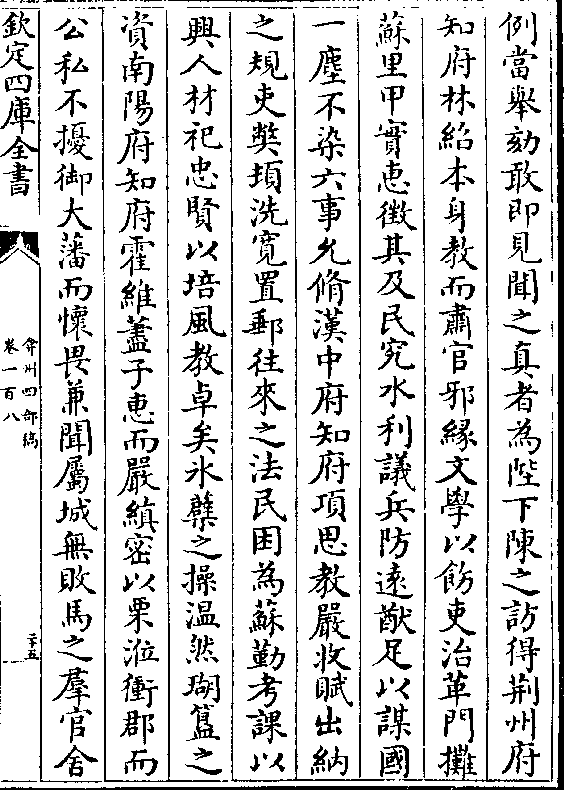 例當舉劾敢即見聞之真者為陛下陳之訪得荆州府
知府林紹本身教而肅官邪緣文學以飭吏治革門攤
蘇里甲實恵徴其及民究水利議兵防逺猷足以謀國
一塵不染六事允脩漢中府知府項思教嚴收賦出納
之規吏獘頊洗寛置郵往來之法民困為蘇勤考課以
興人材祀忠賢以培風教卓矣氷蘖之操温然瑚簋之
資南陽府知府霍維藎子恵而嚴縝宻以栗涖衝郡而
公私不擾御大藩而懐畏兼聞屬城無敗馬之羣官舎
欽定四庫全書
弇州四部稿
卷一百八
二十五